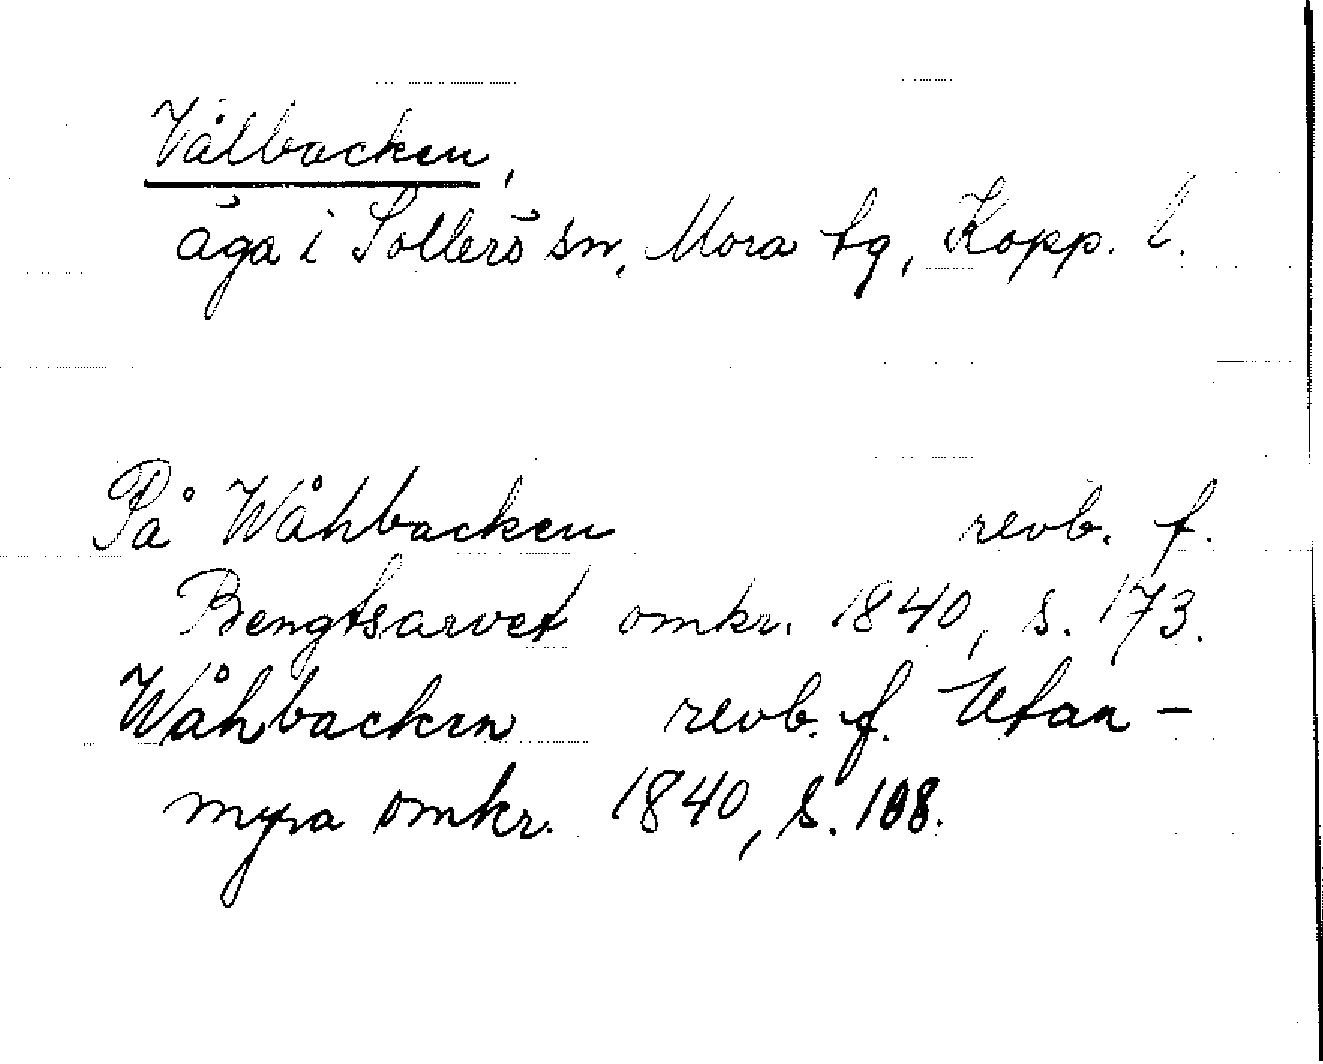 Vålbacken,
äga i Sollerö sn, Mora tg, Kopp. l.
På Wåhbacken revb. f.
Bengtsarvet omkr. 1840, s. 173.
Wåhbacken revb. f. Utan-
myra omkr. 1840, s. 108.